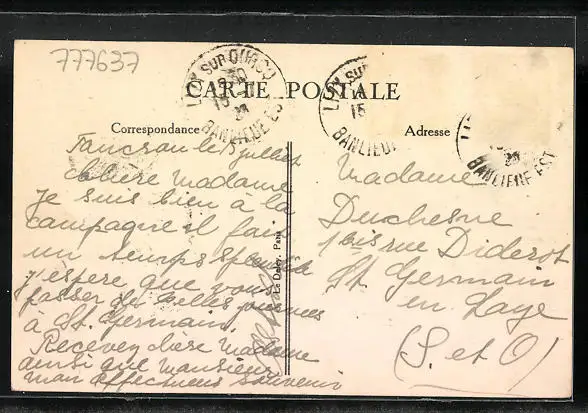 777637
LIZY SUR OURCQ
BANLIEUE EST
CARTE POSTALE
LIZY SUR
15
BANLIEUE
BANLIEUE EST
Correspondance
Adresse
le juillet
chère Madame
je suis bien à la
campagne il fait
un temps splendide
j'espère que vous
passer des belles journées
à St. Germain,
Recevez chère Madame
ainsi que Monsieur
mon affectueux souvenir
Paris
Madame
Duchesne
1 bis rue Diderot
St Germain
en Laye
(S. et O)